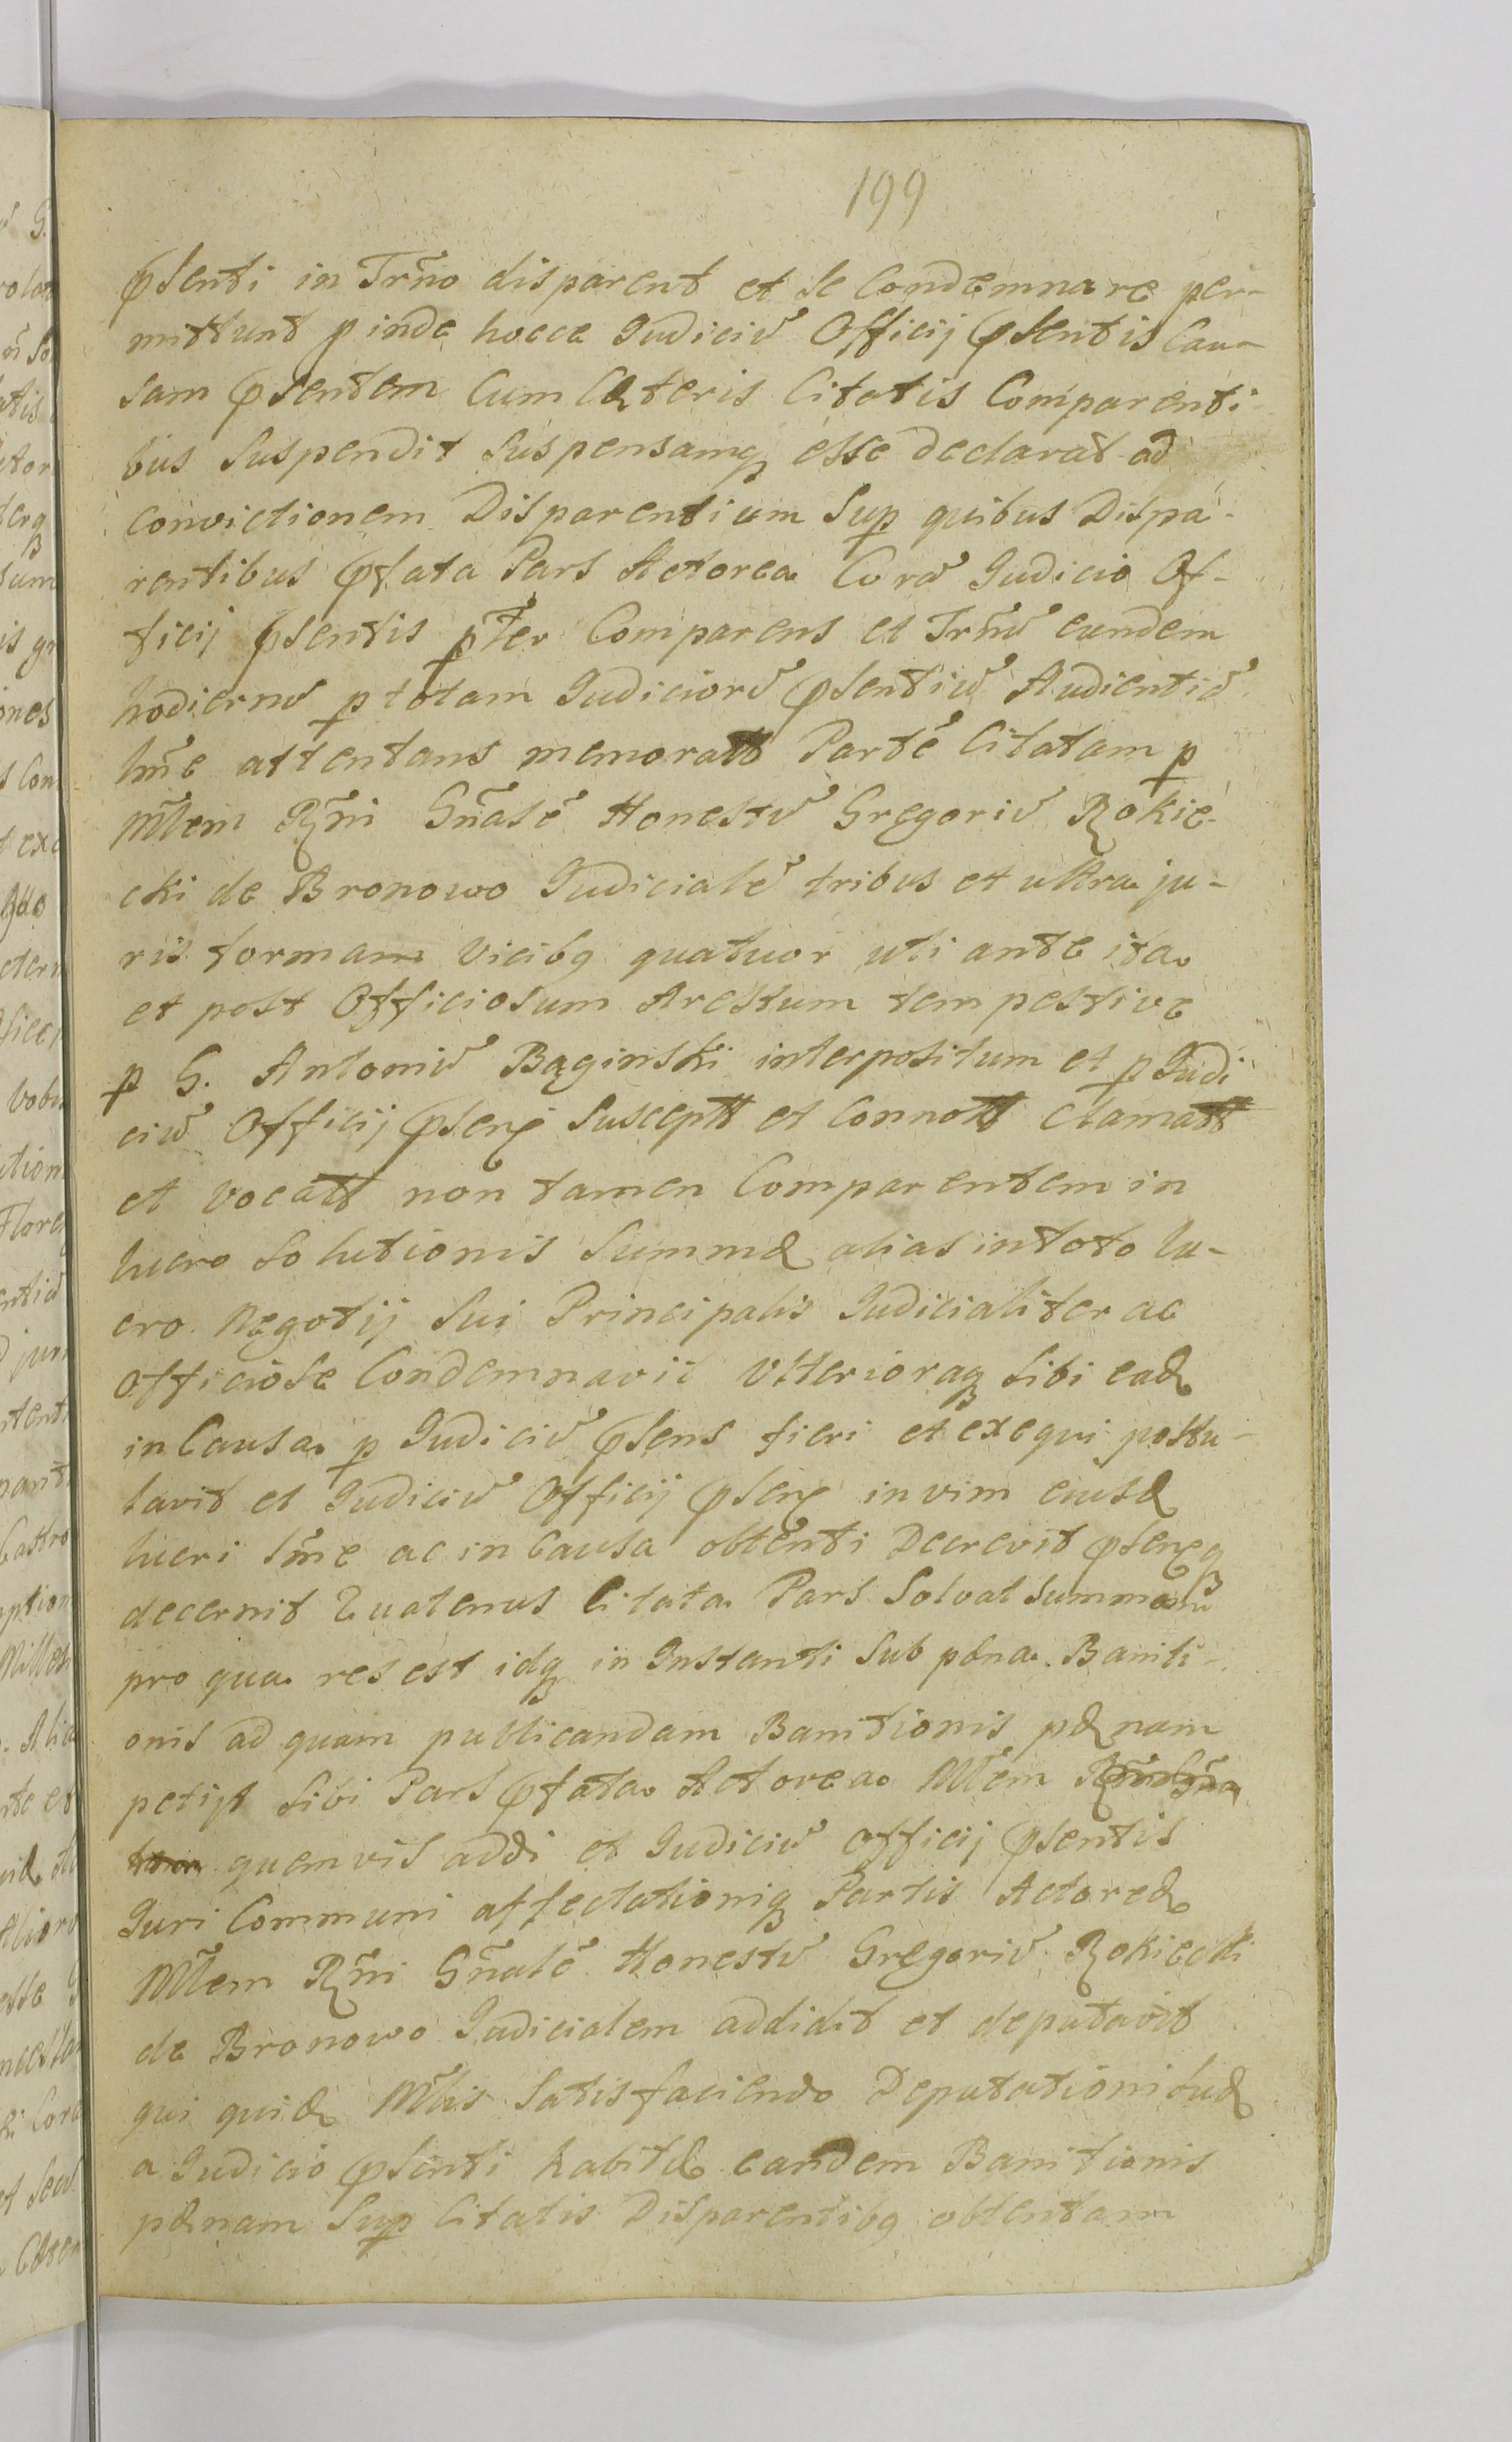 199
pſenti in Trño disparent et se Condemnare per-
mittunt p inde hocce Judiciũ Officij pſentis Cau-
sam pſentem Cum Cæteris Citatis Comparenti-
bus Suspendit Suspensamq esse declarat ad
convictionem Disparentium Sup quibus Dispa-
rentibus pfata Pars Actorea Corã Judicio Of-
ficij pſentis pr̃ter Comparens et Trñũ eundem
hodiernũ p totam Judiciorũ pſentiũ Audientiã
lm̃e attentans memoratt Partẽ Citatam p
Mr̃lem Rñi Gñalẽ Honestũ Gregoriũ Rokie-
cki de Bronowo Judicialẽ tribus et ultra ju-
ris formam Vicibq quatuor uti ante ita
et post Officiosum Arestum tempestive
p G. Antoniũ Bąginski interpositum et p Judi
ciũ Officij pſens Susceptt et Connott Clamatt
et vocatt non tamen Comparentem in
lucro Solutionis Summæ alias in toto lu-
cro Negotij Sui Principalis Judicialiter ac
Officiose Condemnavit Ulterioraq Sibi ead
in Causa p Judiciũ pſens fieri et exequi postu-
lavit et Judiciũ Officij pſens in vim eiusd
lucri lm̃e ac in Causa obtenti Decrevit pſensq
decernit Quatenus Citata Pars Solvat Summam
pro qua res est idq in Instanti Sub pæna Baniti-
onis ad quam publicandam Banitionis pænam
petijt Sibi Pars pfata Actorea Mr̃lem
quemvis addi et Judiciũ officij pſentis
Juri Communi affectationiq Partis Actoreæ
Mr̃lem Rñi Gñalẽ Honestũ Gregoriũ Rokiecki
de Bronowo Judicialem addidit et deputavit
qui quid Mr̃lis Satisfaciendo Deputationi Suæ
a Judicio pſenti habitæ eandem Banitionis
pænam Sup Citatis Disparentibq obtentam